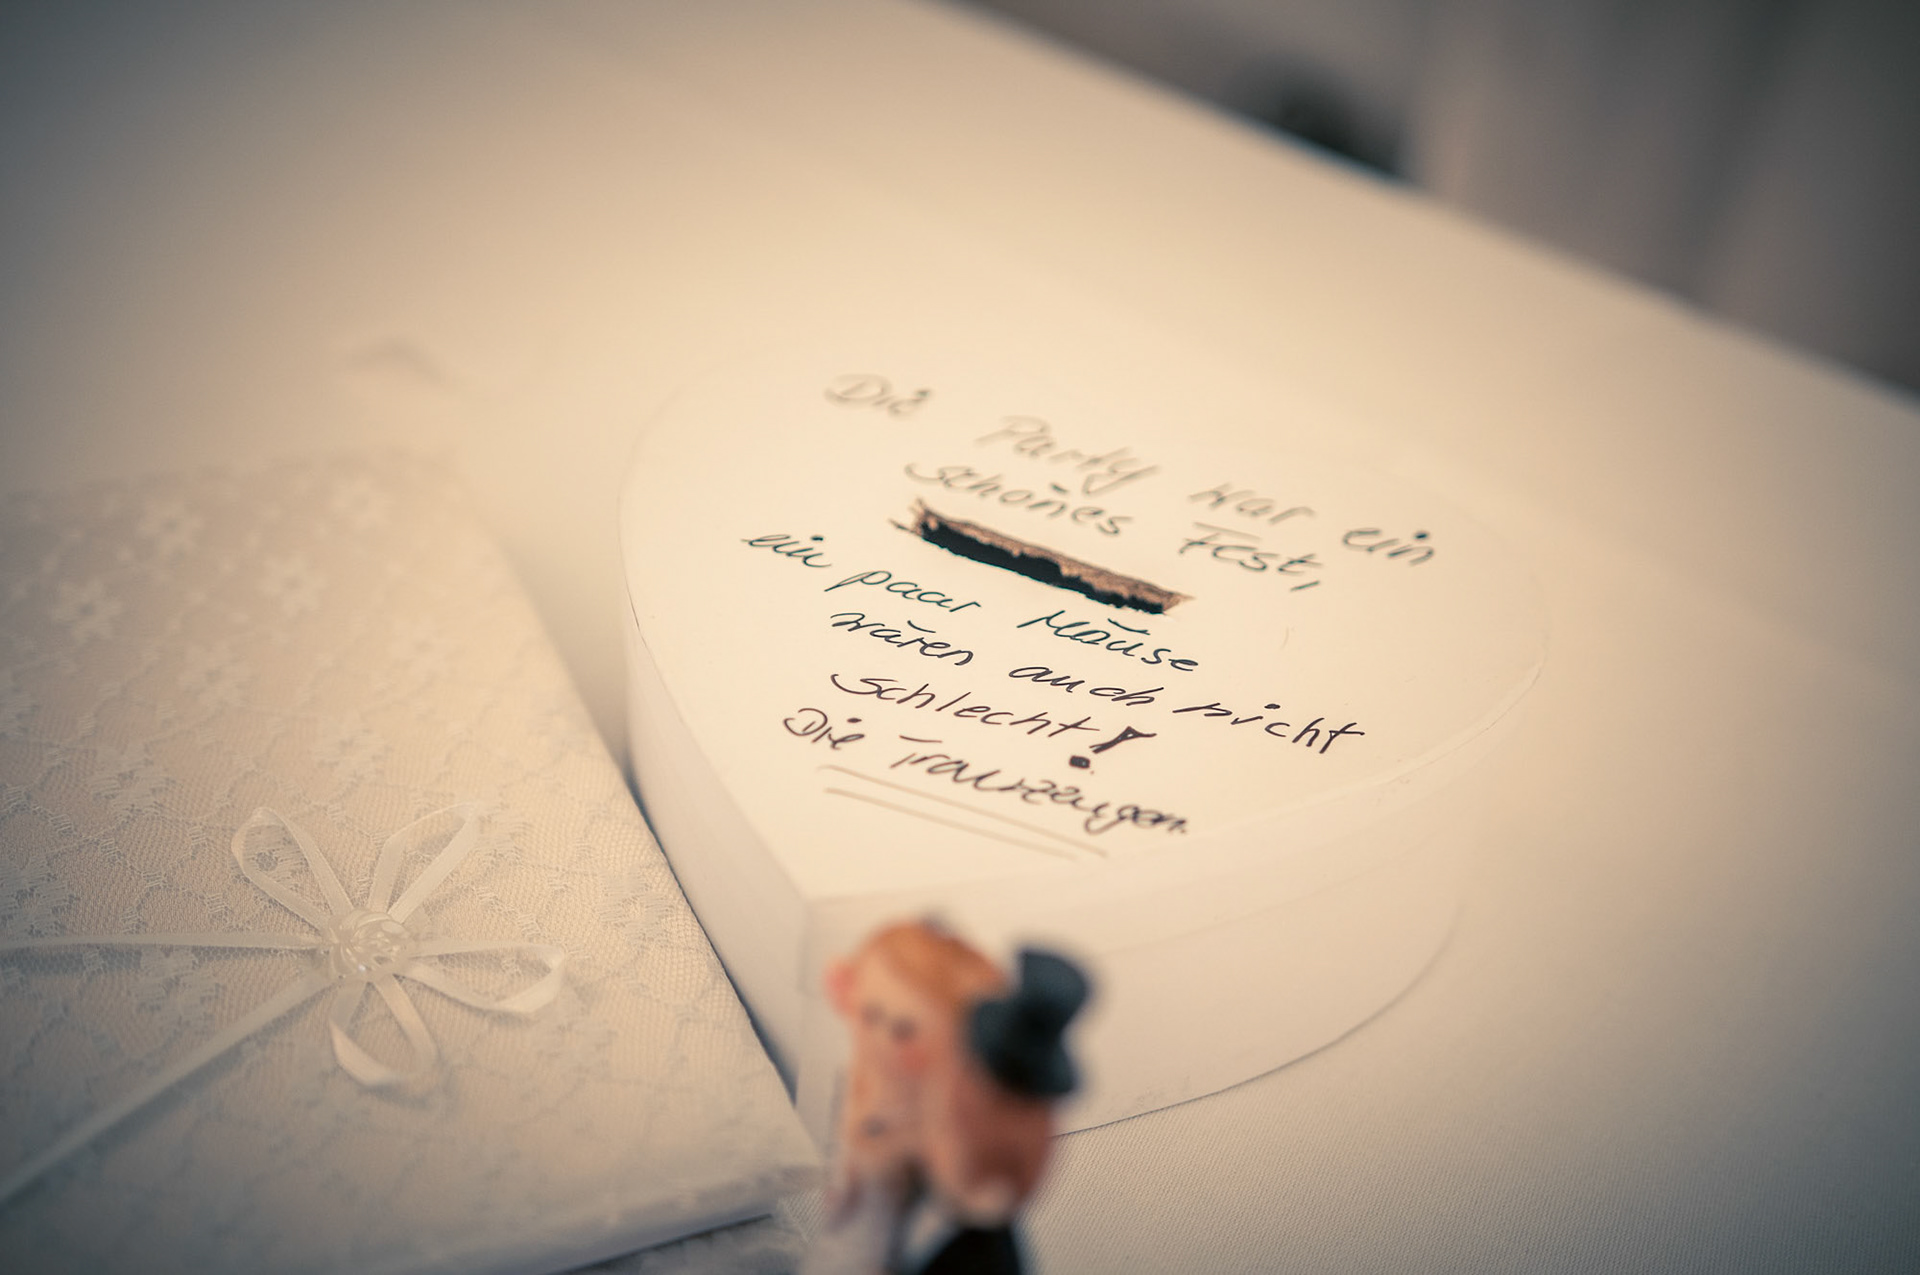 Die Party war ein
schönes Fest,
ein paar Mäuse
wären auch nicht
schlecht!
Die Trauzeugen.